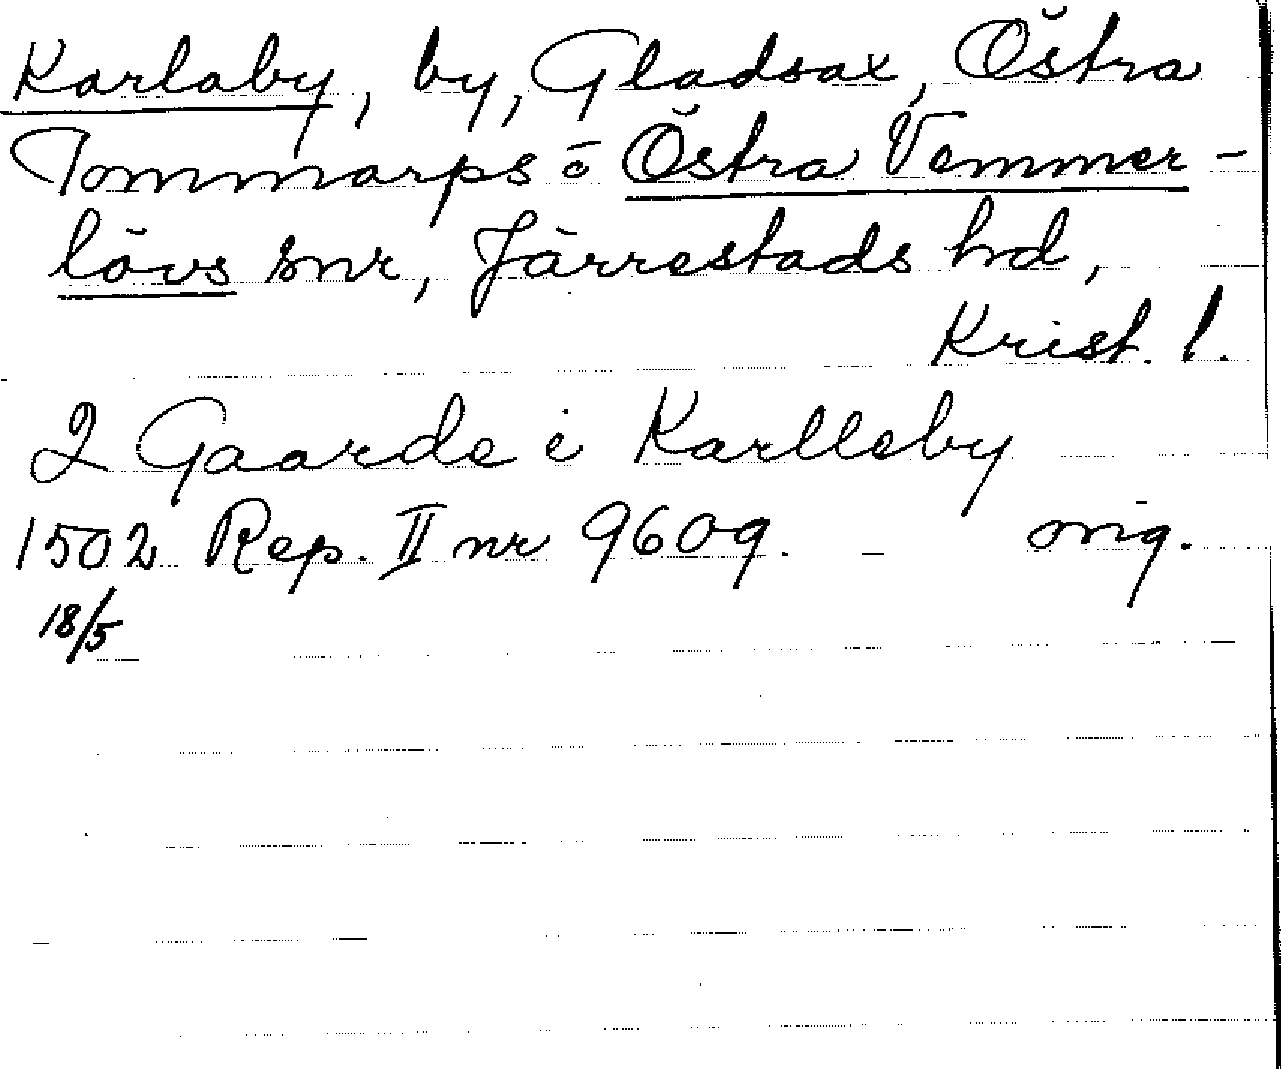 Karlaby, by, Gladsax, Östra
Tommarps o Östra Vemmer-
lövs snr, Järrestads hd,
Krist. l.
2 Gaarde i Karlleby
1502 Rep. II nr 9609. - orig.
18/5